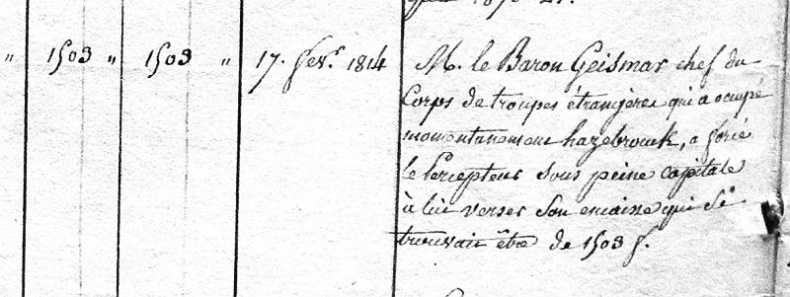 " 1503 " 1503 " 17. fev.r 1814 M. le Baron Geismar chef du
Corps de troupes étrangères qui a ocupé
momentanement hazebrouck, a forcé
le Percepteur sous peine capitale
à lui verser son encaisse qui se
trouvait être de 1503 f.